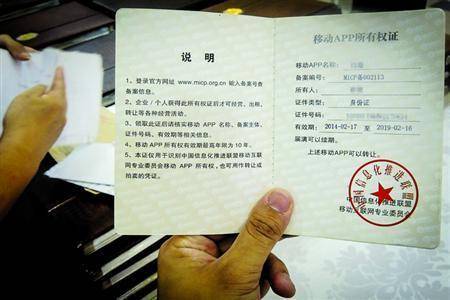 说 明
1、登录官方网址 www.micp.org.cn 输入备案号查
备案信息。
2、企业／个人获得此所有权证后才可经营、出租、
转让等各种经营活动。
3、领取此证后请核实移动 APP 名称、备案主体、
证件号码、有效期等相关信息。
4、移动 APP 所有权有效期最高年限为 10 年。
5、本证仅用于识别中国信息化推进联盟移动互联
网专业委员会移动 APP 所有权, 也可用作转让或
拍卖的凭证。
移动APP所有权证
移动APP名称：
备案编号： MICP备002113
所有人：
证件类型： 身份证
证件号码：
有效期： 2014-02-17 至 2019-02-16
届满可以续期。
上述移动APP可以转让。
中国信息化推进联盟
中国信息化推进联盟
移动互联网专业委员会